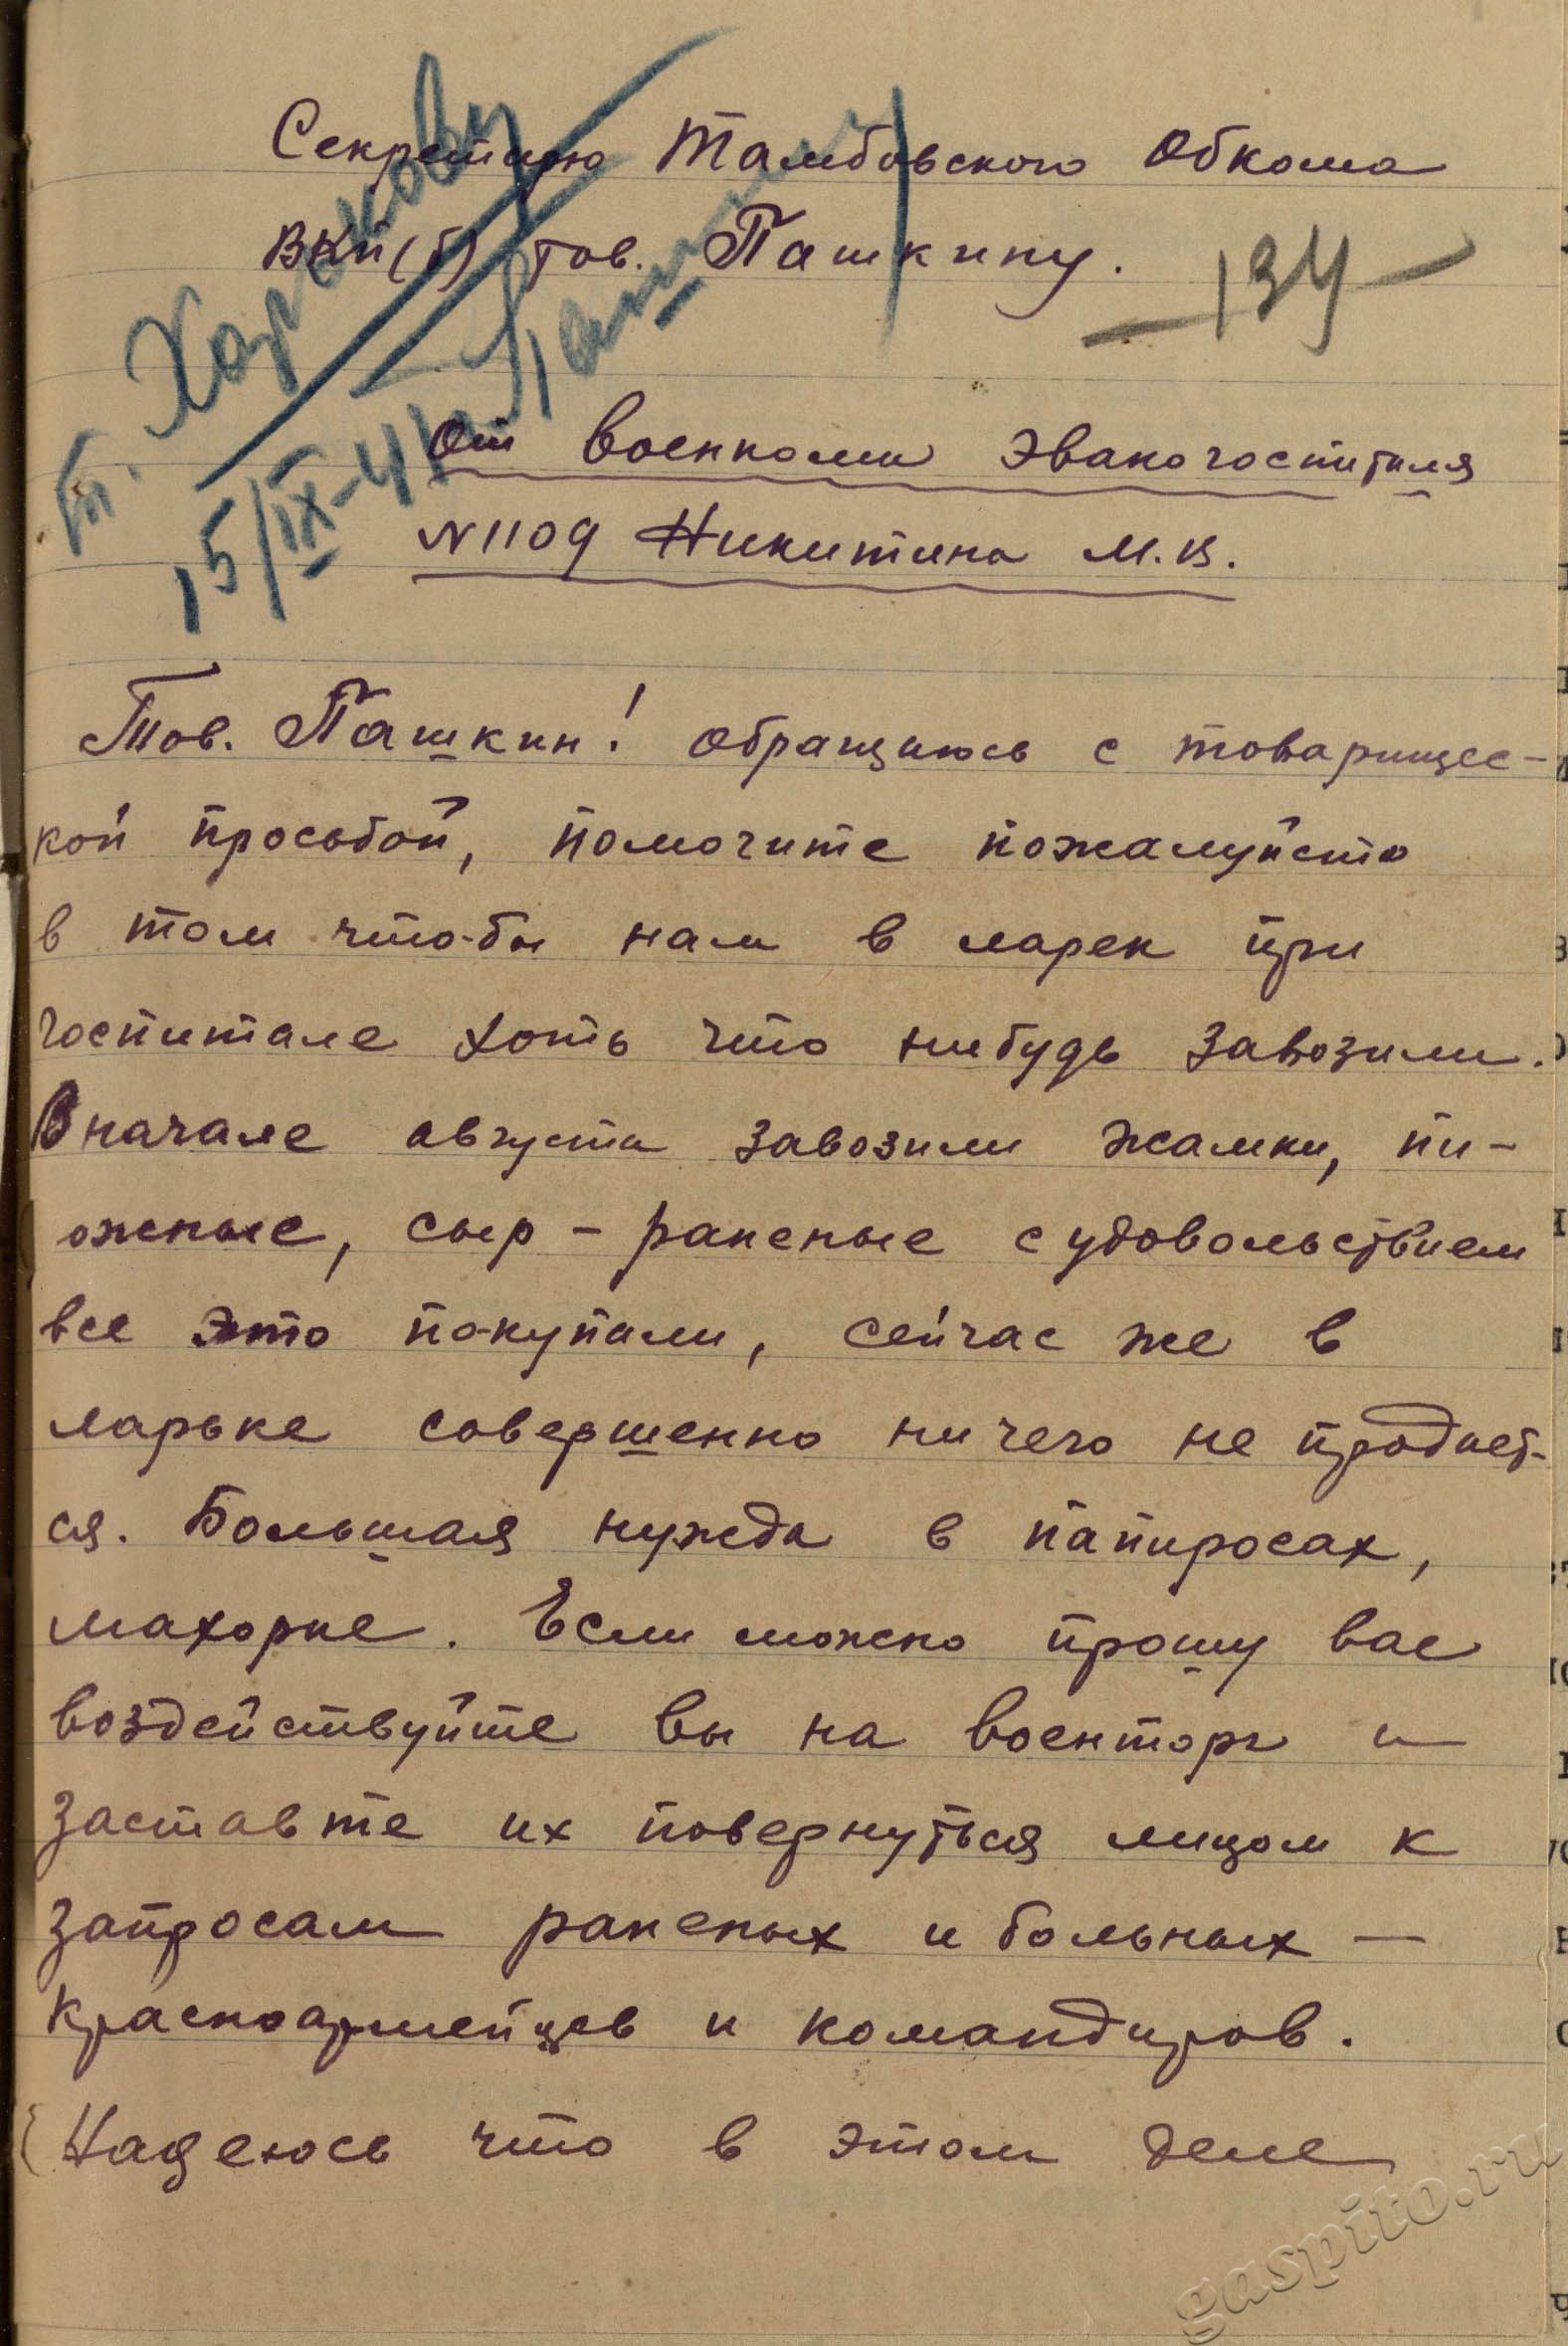 Секретарю Тамбовского Обкома
ВКП(б) тов. Пашкину.
134
т. Харькову
15/IX-41 Пашкин
От военкома эвакогоспиталя
N1109 Никитина М.В.
Тов. Пашкин! Обращаюсь с товарищес-
кой просьбой, помогите пожалуйста
в том что-бы нам в ларек при
госпитале хоть что нибудь завозили.
В начале августа завозили жамки, пи-
ожные, сыр - раненые с удовольствием
все это покупали, сейчас же в
ларьке совершенно ничего не продает-
ся. Большая нужда в папиросах,
махорке. Если можно прошу вас
воздействуйте вы на военторг и
заставте их повернуться лицом к
запросам раненых и больных —
красноармейцев и командиров.
Надеюсь что в этом деле
gaspito.ru